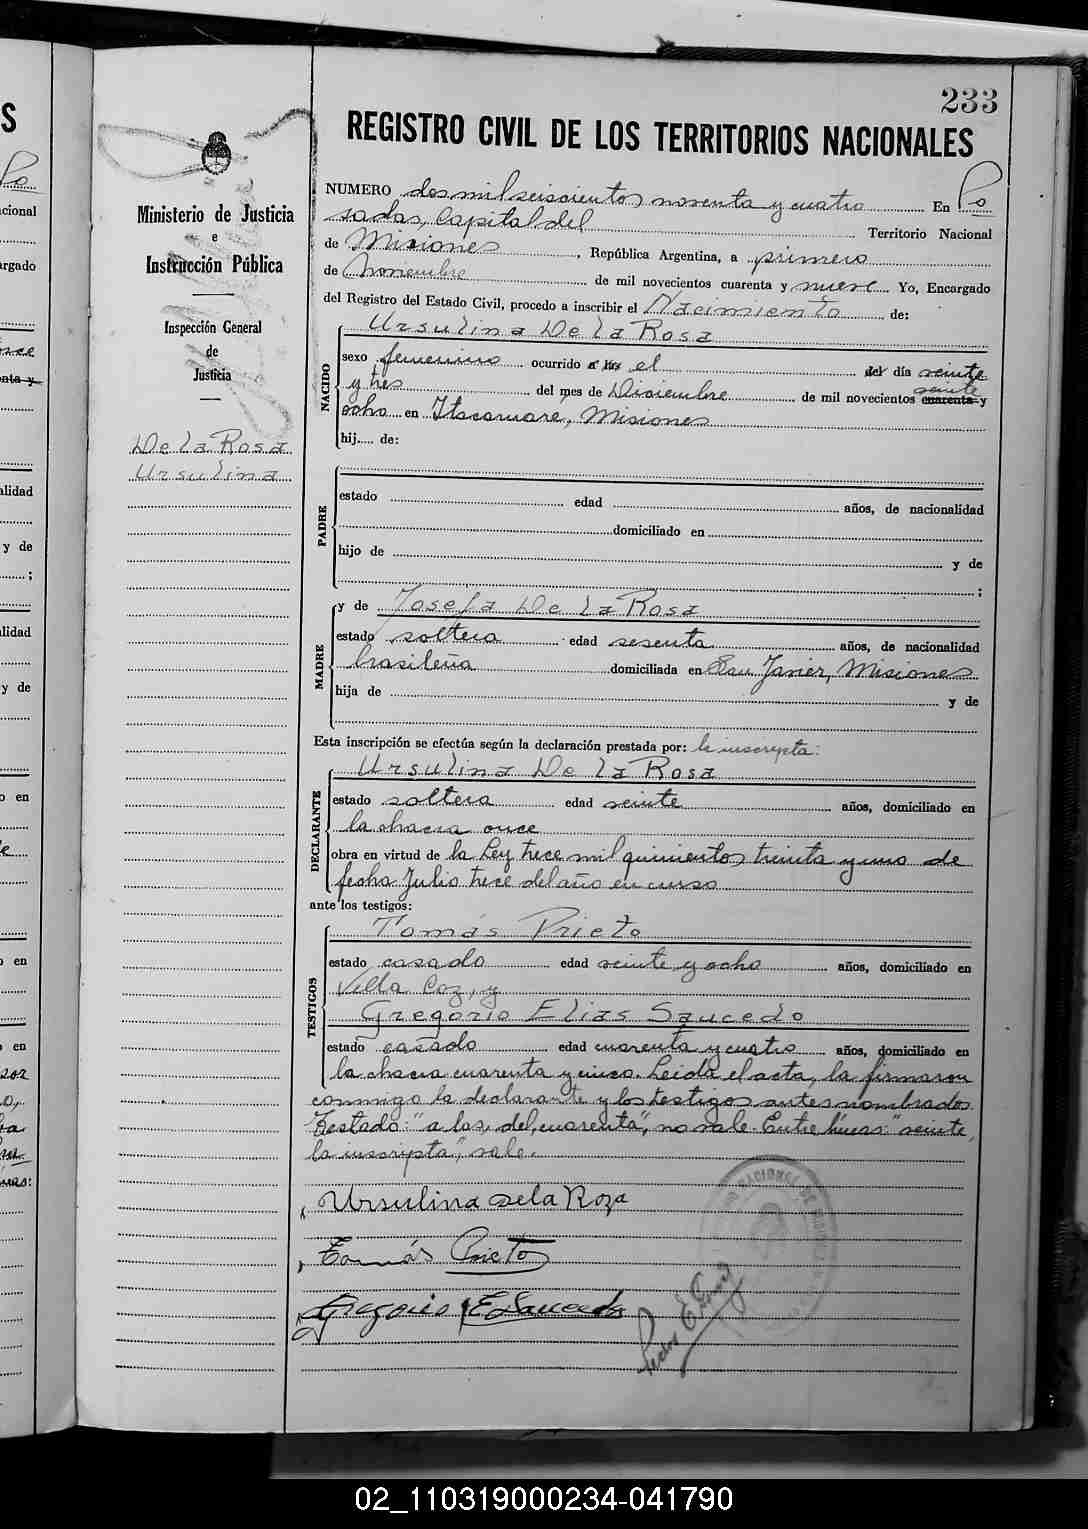 233
REGISTRO CIVIL DE LOS TERRITORIOS NACIONALES
Ministerio de Justicia
e
Instrucción Pública
Inspección General
de
Justicia
De la Rosa
Ursulina
NUMERO dos mil seiscientos noventa y cuatro En Po
sadas, Capital del Territorio Nacional
de Misiones, República Argentina, a primero
de Noviembre de mil novecientos cuarenta y nueve Yo, Encargado
del Registro del Estado Civil, procedo a inscribir el Nacimiento de:
Ursulina De la Rosa
NACIDO
sexo femenino ocurrido a las el del día veinte
y tres del mes de Diciembre de mil novecientos cuarenta y veinte
ocho en Itacaruare, Misiones
hij.... de:
PADRE
estado edad años, de nacionalidad
domiciliado en
hijo de y de
;
y de Josefa De la Rosa
MADRE
estado soltera edad sesenta años, de nacionalidad
brasileña domiciliada en San Javier, Misiones
hija de y de
Esta inscripción se efectúa según la declaración prestada por: la inscripta:
Ursulina De la Rosa
DECLARANTE
estado soltera edad veinte años, domiciliado en
la chacra once
obra en virtud de la Ley trece mil quinientos treinta y uno de
fecha Julio trece del año en curso
ante los testigos:
Tomás Prieto
TESTIGOS
estado casado edad veinte y ocho años, domiciliado en
Villa Coz, y
Gregorio Elias Saucedo
estado casado edad cuarenta y cuatro años, domiciliado en
la chacra cuarenta y cinco. Leida el acta, la firmaron
conmigo la declarante y los testigos antes nombrados.
Testado: "a las, del, cuarenta", no vale. Entre lineas: "veinte,
la inscripta", vale.
Ursulina dela Roza
Tomás Prieto
Gregorio E Saucedo
02_110319000234-041790